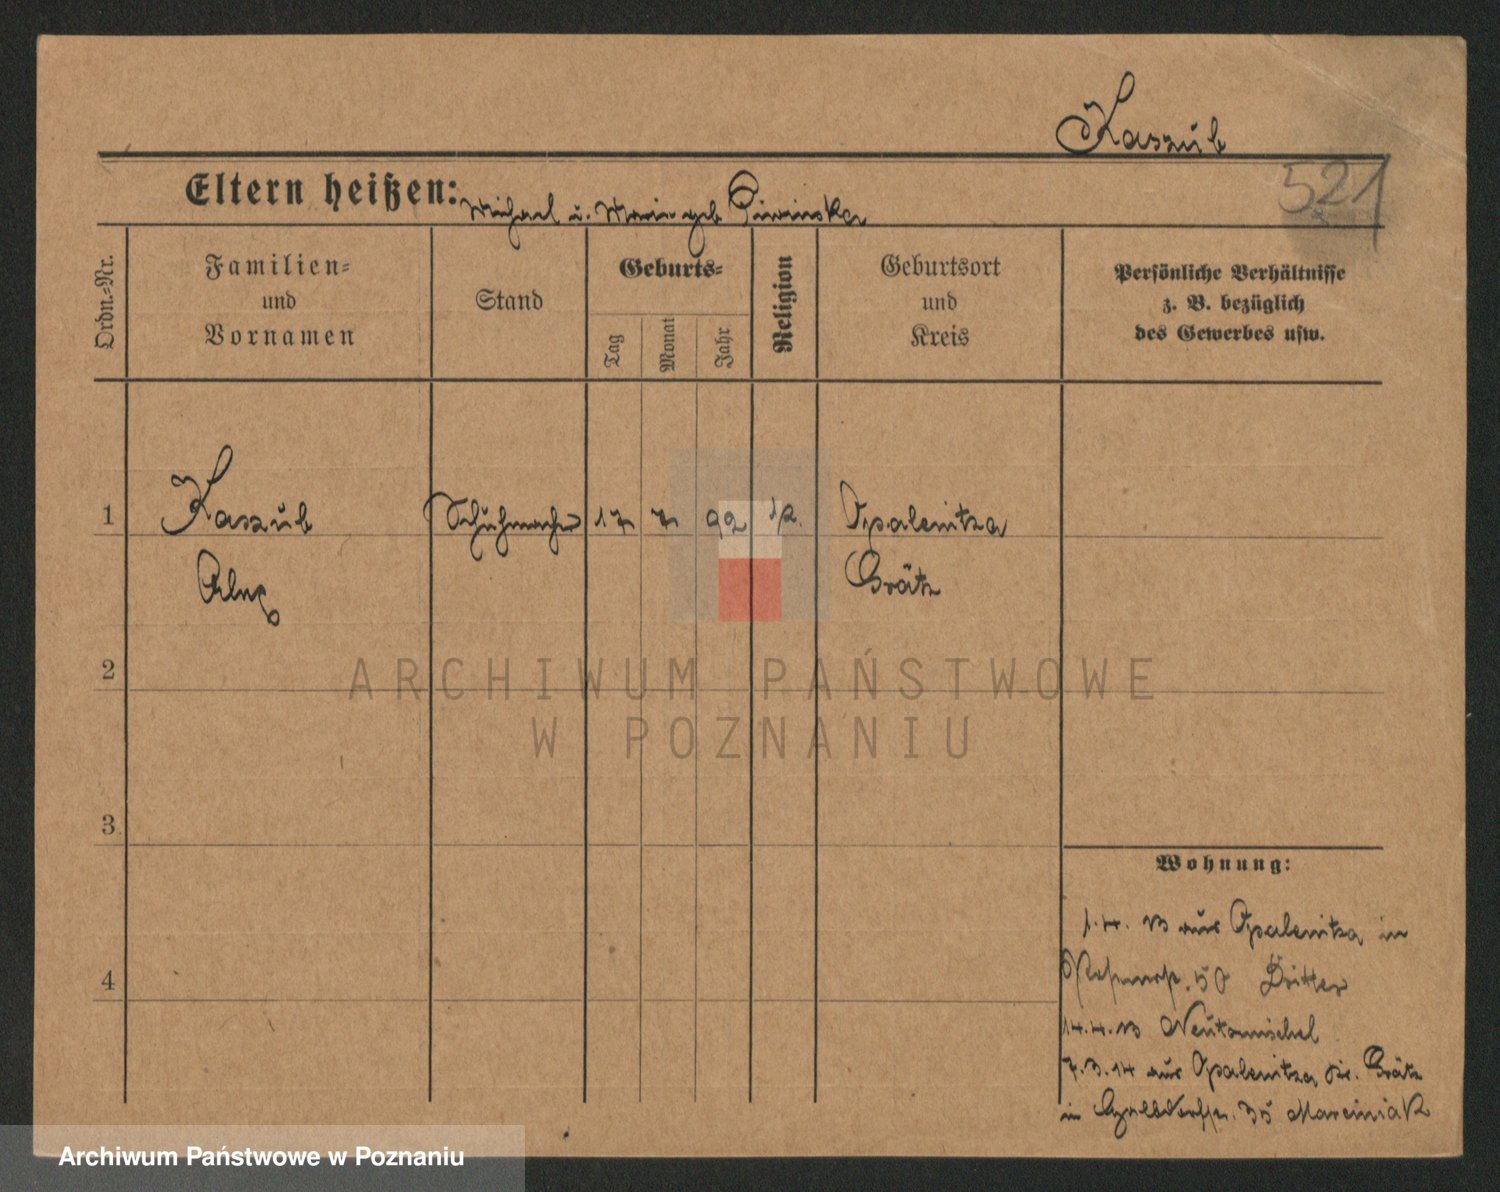 Kaszub
521
Eltern heißen: Michael u. Maria geb Piwinska
Ordn.-Nr.
Familien-
und
Vornamen
Stand
Geburts-
Tag
Monat
Jahr
Religion
Geburtsort
und
Kreis
Persönliche Verhältnisse
z. B. bezüglich
des Gewerbes usw.
1 Kaszub Schuhmacher 17 7 92 Opalenitza
Grätz
2
3
4
Wohnung:
1.4. 13 aus Opalenitza in
50 Ditter
14.4.13 Neutomischel
7.3.14 aus Opalenitza Kr. Grätz
in 35 Marciniak
ARCHIWUM PAŃSTWOWE
W POZNANIU
Archiwum Państwowe w Poznaniu